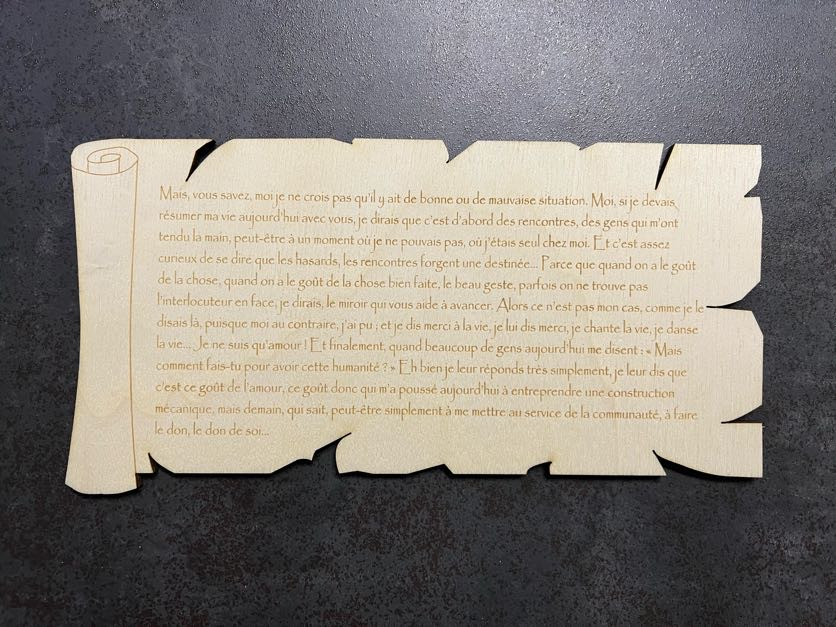 Mais, vous savez, moi je ne crois pas qu'il y ait de bonne ou de mauvaise situation. Moi, si je devais
résumer ma vie aujourd'hui avec vous, je dirais que c'est d'abord des rencontres, des gens qui m'ont
tendu la main, peut-être à un moment où je ne pouvais pas, où j'étais seul chez moi. Et c'est assez
curieux de se dire que les hasards, les rencontres forgent une destinée... Parce que quand on a le goût
de la chose, quand on a le goût de la chose bien faite, le beau geste, parfois on ne trouve pas
l'interlocuteur en face, je dirais, le miroir qui vous aide à avancer. Alors ce n'est pas mon cas, comme je le
disais là, puisque moi au contraire, j'ai pu ; et je dis merci à la vie, je lui dis merci, je chante la vie, je danse
la vie... Je ne suis qu'amour ! Et finalement, quand beaucoup de gens aujourd'hui me disent : « Mais
comment fais-tu pour avoir cette humanité ? » Eh bien je leur réponds très simplement, je leur dis que
c'est ce goût de l'amour, ce goût donc qui m'a poussé aujourd'hui à entreprendre une construction
mécanique, mais demain, qui sait, peut-être simplement à me mettre au service de la communauté, à faire
le don, le don de soi...